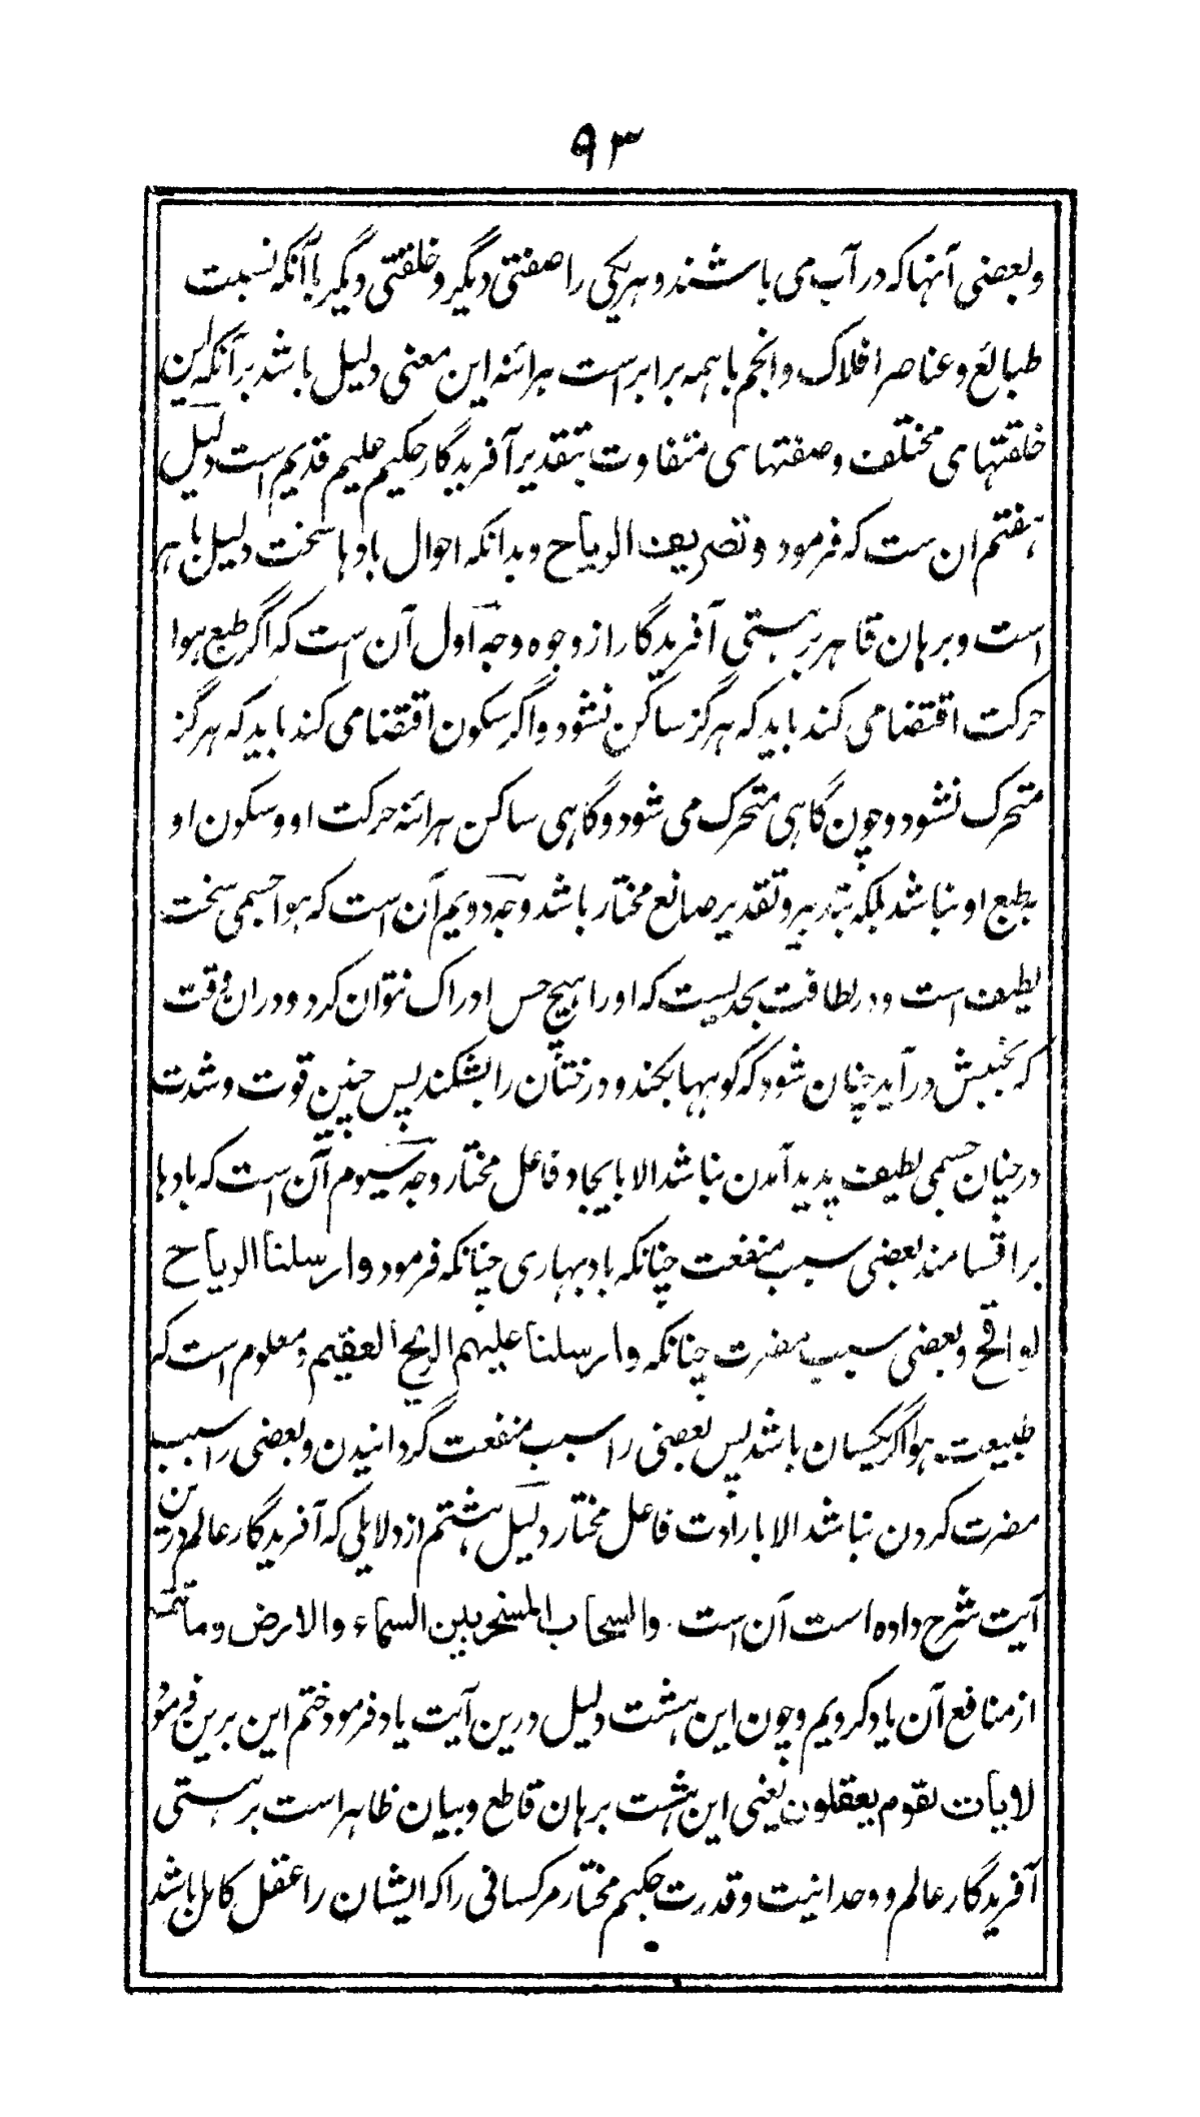 ۹۳
وبعضی آنها که در آب می باشند و هریکی را صفتی دیگر و خلقتی دیگر با آنکه نسبت
طبائع و عناصر افلاک و انجم با همه برابر است هرائنه این معنی دلیل باشد بر آنکه این
خلقتهای مختلف و صفتهای متفاوت بتقدیر آفریدگار حکیم علیم قدیم است دلیل
هفتم ان ست که فرمود وتصریف الریاح و بدانکه احوال بادها سخت دلیل باهر
است و برهان قاهر بر هستی آفریدگار از وجوه وجه اول آن است که اگر طبع هوا
حرکت اقتضا می کند باید که هرگز ساکن نشود و اگر سکون اقتضا می کند باید که هرگز
متحرک نشود و چون گاهی متحرک می شود و گاهی ساکن هرائنه حرکت او و سکون او
بطبع او نباشد بلکه بتدبیر و تقدیر صانع مختار باشد وجه دویم آن است که هوا جسمی سخت
لطیف است و در لطافت بحدیست که او را هیچ حس ادراک نتوان کرد و دران وقت
که بجنبش در آید چنان شود که کوهها بکند و درختان را بشکند پس چنین قوت و شدت
در چنان جسمی لطیف پدید آمدن نباشد الا بایجاد فاعل مختار وجه سیوم آن است که بادها
بر اقسامند بعضی سبب منفعت چنانکه باد بهاری چنانکه فرمود وارسلنا الریاح
لواقح و بعضی سبب مضرت چنانکه وارسلنا علیهم الریح العقیم و معلوم است که
طبیعت هوا اگر یکسان باشد پس بعضی را سبب منفعت گردانیدن و بعضی را سبب
مضرت کردن نباشد الا بارادت فاعل مختار دلیل هشتم از دلایلی که آفریدگار عالم درین
آیت شرح داده است آن است والسحاب المسخر بین السماء والارض و ما تتمه
از منافع آن یاد کردیم و چون این هشت دلیل درین آیت یاد فرمود ختم این برین فرمود
لایات لقوم یعقلون یعنی این هشت برهان قاطع و بیان ظاهر است بر هستی
آفریدگار عالم و وحدانیت و قدرت حکیم مختار مر کسانی را که ایشان را عقل کامل باشد